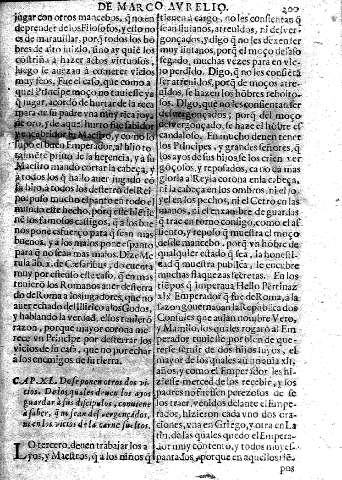 DE MARCO AVRELIO.
200
jugar con otros mancebos, q̃ no en
depender de los Filosofos, y esto no
es de marauillar, porq̃ todos los hõ
bres de alto juizio, sino ay quiẽ los
costriña a hazer actos virtuosos,
luego se auezan a cometer vicios
muy feos. Fue el caso, que como a
quel Principe moço no tuuiesse ya
q̃ jugar, acordò de hurtar de la reca
mara de su padre vna muy rica joya
de oro, y de aq̃l hurto fue sabidor
y encubridor su Maestro, y como lo
supo el buen Emperador, al hijo to
priuò de la herencia, y a su
Maestro mandò cortar la cabeça, y
a todos los q̃ hallò auer jugado cõ
su hijo, a todos los desterrò del Rei
puso mucho espanto en todo el
mundo este hecho, porq̃ este
ne los famosos castigos, q̃ a los bue
nos pone esfuerço para q̃ sean mas
buenos, y a los malos pone espanto
para q̃ no sean mas malos. Dize
muy por estenso este caso, q̃ en mas
tuuierõ los Romanos auer desterra
do de Roma a los jugadores, que no
auer echado del Ilirico a los Godos,
y hablando la verdad, ellos tenian
razon, porque mayor corona me-
rece vn Principe por desterrar los
vicios de su casa, que no por echar
a los enemigos de su tierra.
CAP. XL. Do se ponen otros dos vi
cios. De los quales deuen los ayos
guardar a sus discipulos, conuiene
a saber, q̃ no sean desvergonçados,
ni en los vicios de la carne sueltos.
LO tercero, deuen trabajar los a
yos, y Maestros, q̃ a los niños q̃
tienen a cargo, no les consientan q̃
sean liuianos, atreuidos, ni desver-
gonçados, y digo q̃ no les dexen ser
muy liuianos, porq̃ el moço de
segado, muchas vezes para en vie-
jo perdido. Digo, q̃ no les consientã
ser atreuidos, porq̃ de moços atre-
uidos, se hazen los hõbres rebolto-
sos. Digo, que no les consientan ser
desvergonçados, porq̃ del moço
desvergonçado, se haze el hõbre es
candaloso. En mucho deuen tener
los Principes, y grandes señores, q̃
los ayos de sus hijos se los crien ver
gonçosos, y reposados, ca no da mas
gloria al Rey la corona en la cabeça,
ni la cabeça en los ombros, ni el jo-
yel en los pechos, ni el Cetro en las
manos, ni el enxambre de guardas
q̃ trae en torno consigo, como el as
siento, y reposo q̃ muestra el moço
desde mancebo, porq̃ vn hõbre de
qualquier estado q̃ sea, la honesti-
dad q̃ muestra publica, le encubre
muchas flaquezas secretas. En los
tiẽpos q̃ imperaua Helio Pertinaz
xix. Emperador q̃ fue de Roma, a la
fazon gouernauan la Republica dos
Consules que auian nombre Veto,
y Mamilo, los quales rogaron al Em
perador tuuiesse por bien de que-
rerse seruir de dos hijos suyos, el
mayor de los quales aun no auia xij.
años, y como el Emperador les hi
ziesse merced de los recebir, y los
padres no fuessen perezosos de se
los traer, venidos delante el Empe-
rador, hizieron cada vno dos ora-
ciones, vna en Griego, y otra en La
tin, de las quales quedò el Empera-
dor muy contento, y todos muy es
pantados, porque en aquellos tiẽ-
pos